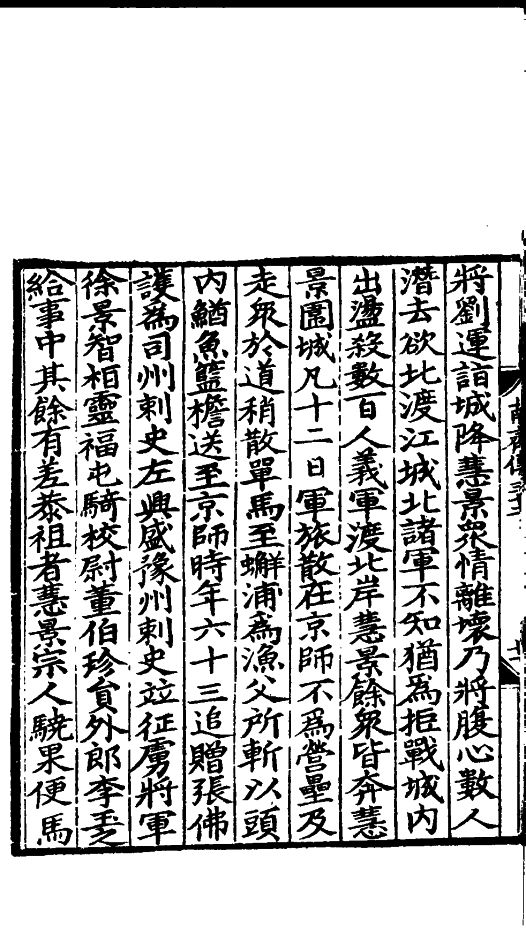 將劉運詣城降慧景衆情離壞乃將腹心數人
潛去欲北渡江城北諸軍不知猶爲拒戰城内
出盪殺數百人義軍渡北岸慧景餘衆皆奔慧
景圍城凡十二日軍旅散在京師不爲營壘及
走衆於道稍散單馬至蟹浦爲漁父所斬以頭
内鰌魚籃檐送至京師時年六十三追贈張佛
護爲司州刺史左興盛豫州刺史竝征虜將軍
徐景智桓靈福屯騎校尉董伯珍員外郎李玉之
給事中其餘有差恭祖者慧景宗人驍果便馬